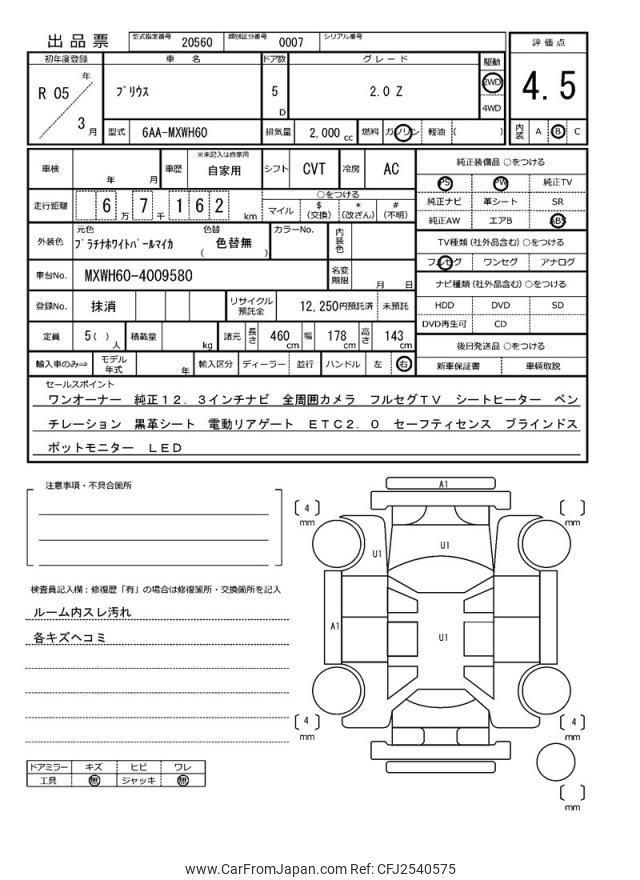 出品票 型式指定番号 20560 類別区分番号 0007 シリアル番号
初年度登録 車名 ドア数 グレード 駆動 評価点
R 05 年 3 月 プリウス 5 D 2.0 Z 2WD 4WD 4.5
型式 6AA-MXWH60 排気量 2,000 cc 燃料 ガソリン 軽油 ( ) 内装 A B C
車検 年 月 車歴 ※未記入は自家用 自家用 シフト CVT 冷房 AC 純正装備品 ○をつける
PS PW 純正TV
走行距離 6 万 7 千 1 6 2 km ○をつける マイル $ (交換) * (改ざん) # (不明) 純正ナビ 革シート SR
純正AW エアB ABS
外装色 元色 プラチナホワイトパールマイカ 色替 ( 色替無 ) カラーNo. 内装色 TV種類 (社外品含む) ○をつける
フルセグ ワンセグ アナログ
車台No. MXWH60-4009580 名変期限 月 日 ナビ種類 (社外品含む) ○をつける
登録No. 抹消 リサイクル預託金 12,250円預託済 未預託 HDD DVD SD
DVD再生可 CD
定員 5( )人 積載量 kg 諸元 長さ 460 cm 幅 178 cm 高さ 143 cm 後日発送品 ○をつける
輸入車のみ⇒ モデル年式 年 輸入区分 ディーラー 並行 ハンドル 左 右 新車保証書 車輌取説
セールスポイント
ワンオーナー 純正12.3インチナビ 全周囲カメラ フルセグTV シートヒーター ベン
チレーション 黒革シート 電動リアゲート ETC2.0 セーフティセンス ブラインドス
ポットモニター LED
注意事項・不具合箇所
検査員記入欄：修復歴「有」の場合は修復箇所・交換箇所を記入
ルーム内スレ汚れ
各キズヘコミ
ドアミラー キズ ヒビ ワレ
工具 無 ジャッキ 無
A1
[ 4 ] mm [ ] mm
U1 U1
A1 U1
[ 4 ] mm [ 4 ] mm
[ ] mm
www.CarFromJapan.com Ref: CFJ2540575